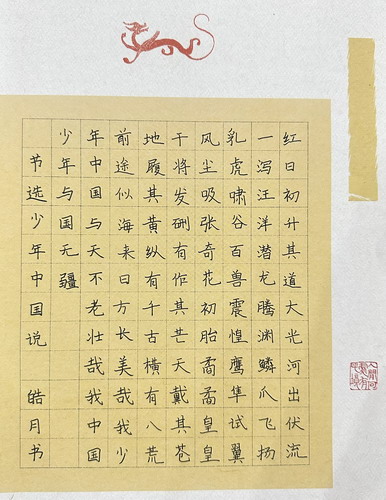 红日初升其道大光河出伏流
一泻汪洋潜龙腾渊鳞爪飞扬
乳虎啸谷百兽震惶鹰隼试翼
风尘吸张奇花初胎矞矞皇皇
干将发硎有作其芒天戴其苍
地履其黄纵有千古横有八荒
前途似海来日方长美哉我少
年中国与天不老壮哉我中国
少年与国无疆
节选少年中国说 皓月书